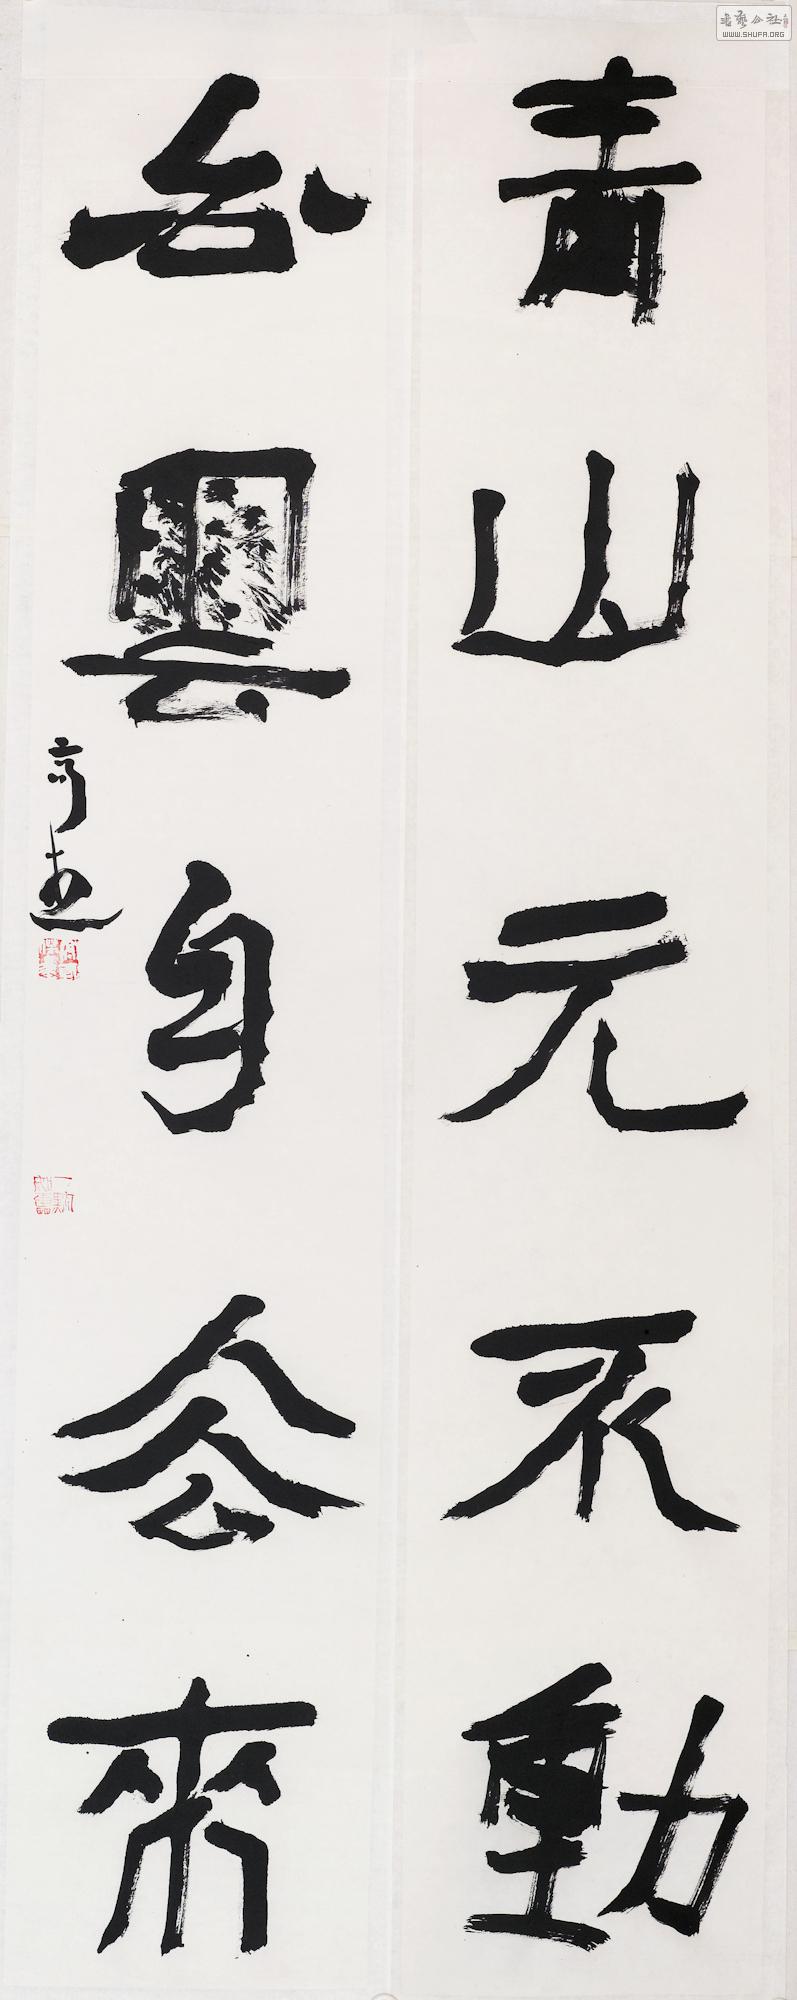 青山元不動
白雲自去來
書藝公社
WWW.SHUFA.ORG